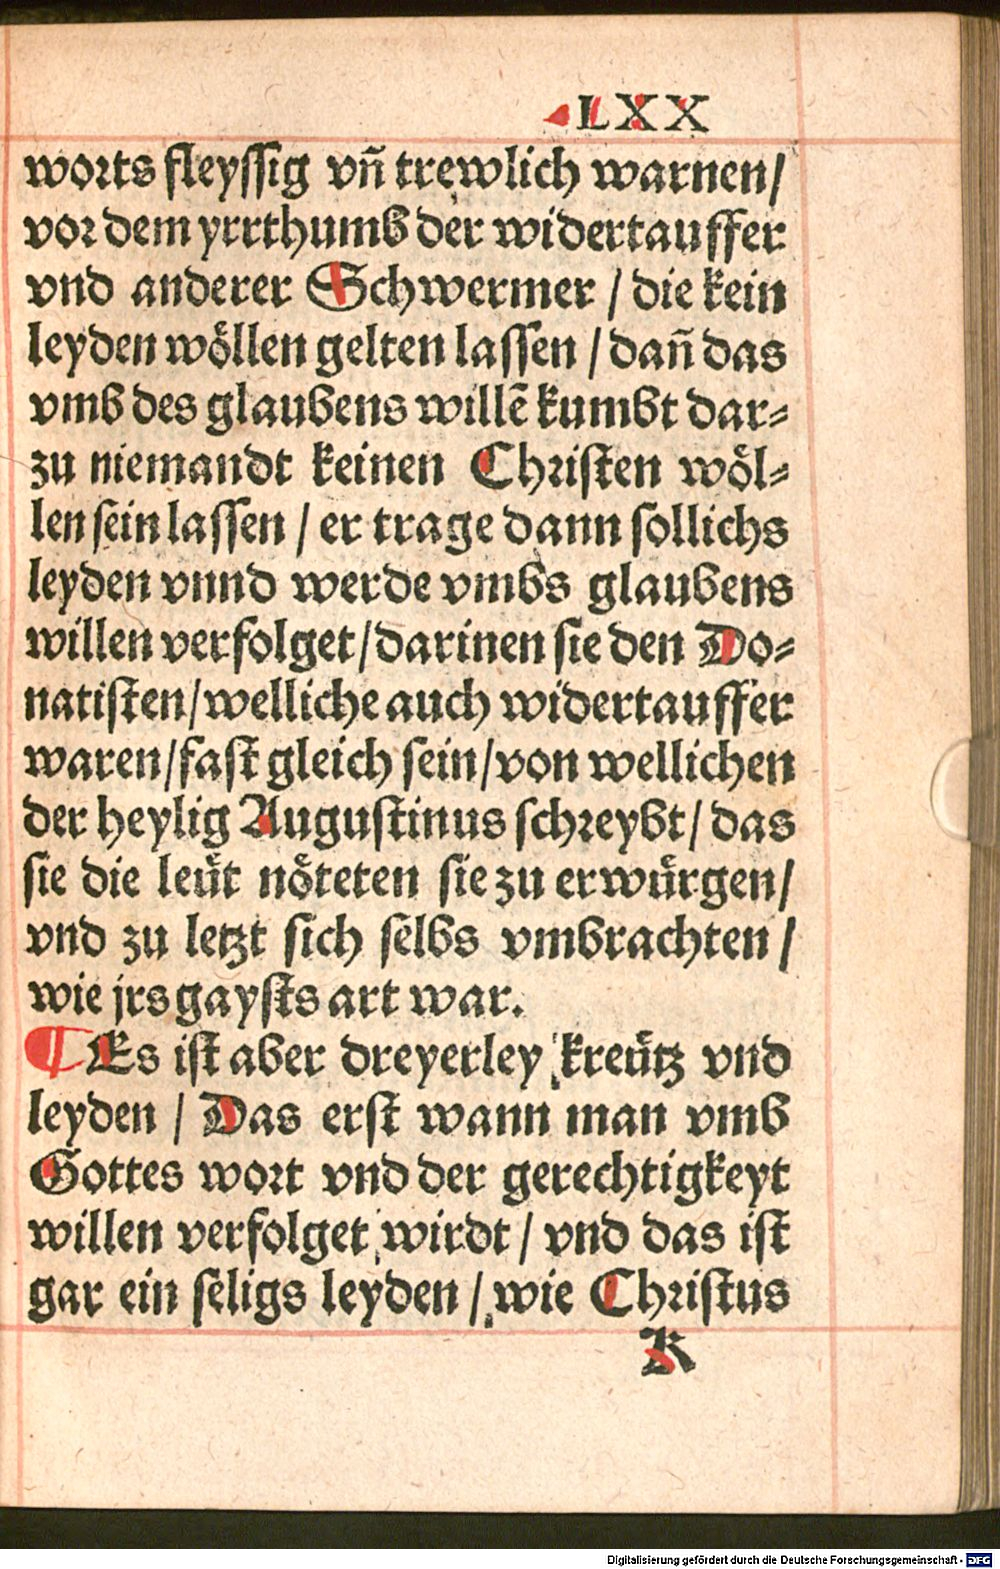 LXX
worts fleyssig vñ trewlich warnen/
vor dem yrrthumb der widertauffer
vnd anderer Schwermer / die kein
leyden wöllen gelten lassen / dañ das
vmb des glaubens willē kumbt dar⸗
zu niemandt keinen Christen wöl⸗
len sein lassen / er trage dann sollichs
leyden vnnd werde vmbs glaubens
willen verfolget/darinen sie den Do⸗
natisten/welliche auch widertauffer
waren/fast gleich sein/von wellichen
der heylig Augustinus schreybt/ das
sie die leüt nöteten sie zu erwürgen/
vnd zu letzt sich selbs vmbrachten /
wie jrs gaysts art war.
¶ Es ist aber dreyerley kreütz vnd
leyden / Das erst wann man vmb
Gottes wort vnd der gerechtigkeyt
willen verfolget wirdt / vnd das ist
gar ein seligs leyden / wie Christus
K
Digitalisierung gefördert durch die Deutsche Forschungsgemeinschaft - DFG